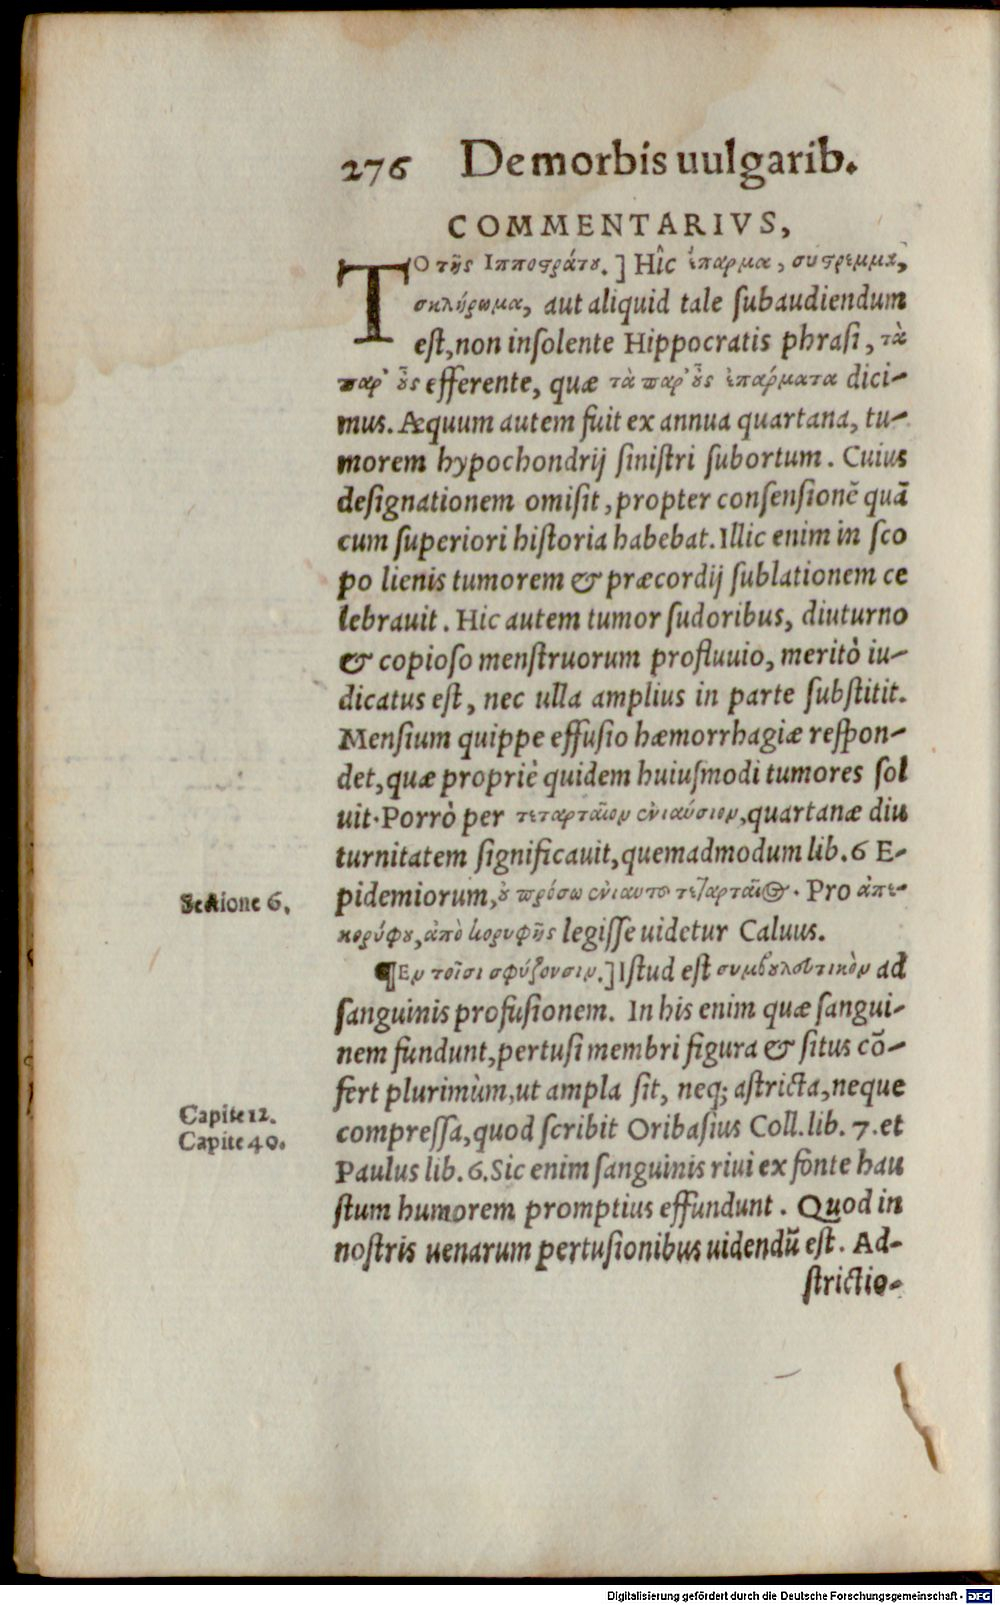 276 De morbis uulgarib.
COMMENTARIVS,
TO τῆς Ιπποστράτου.] Hîc ἔπαρμα, συστρεμμα,
σκλήρωμα, aut aliquid tale subaudiendum
est, non insolente Hippocratis phrasi, τὰ
παρ' οὖς efferente, quæ τὰ παρ' οὖς ἐπαρματα dici-
mus. Aequum autem fuit ex annua quartana, tu-
morem hypochondrij sinistri subortum. Cuius
designationem omisit, propter consensionē quā
cum superiori historia habebat. Illic enim in sco
po lienis tumorem & præcordij sublationem ce
lebrauit. Hic autem tumor sudoribus, diuturno
& copioso menstruorum profluuio, meritò iu-
dicatus est, nec ulla amplius in parte substitit.
Mensium quippe effusio hæmorrhagiæ respon-
det, quæ propriè quidem huiusmodi tumores sol
uit. Porrò per τεταρταῖον ἐνιαύσιον, quartanæ diu
turnitatem significauit, quemadmodum lib. 6 E-
pidemiorum, οὐ πρόσω ἐνιαυτοῦ τεταρταῖος. Pro ἀπε-
κορύφου, ἀπὸ κορυφῆς legisse uidetur Caluus.
Sectione 6.
¶ Εν τοῖσι σφύζουσιν.] Istud est συμβουλευτικὸν ad
sanguinis profusionem. In his enim quæ sangui-
nem fundunt, pertusi membri figura & situs cō-
fert plurimùm, ut ampla sit, neq; astricta, neque
compressa, quod scribit Oribasius Coll. lib. 7. et
Paulus lib. 6. Sic enim sanguinis riui ex fonte hau
stum humorem promptius effundunt. Quod in
nostris uenarum pertusionibus uidendū est. Ad-
strictio-
Capite 12.
Capite 40.
Digitalisierung gefördert durch die Deutsche Forschungsgemeinschaft - DFG